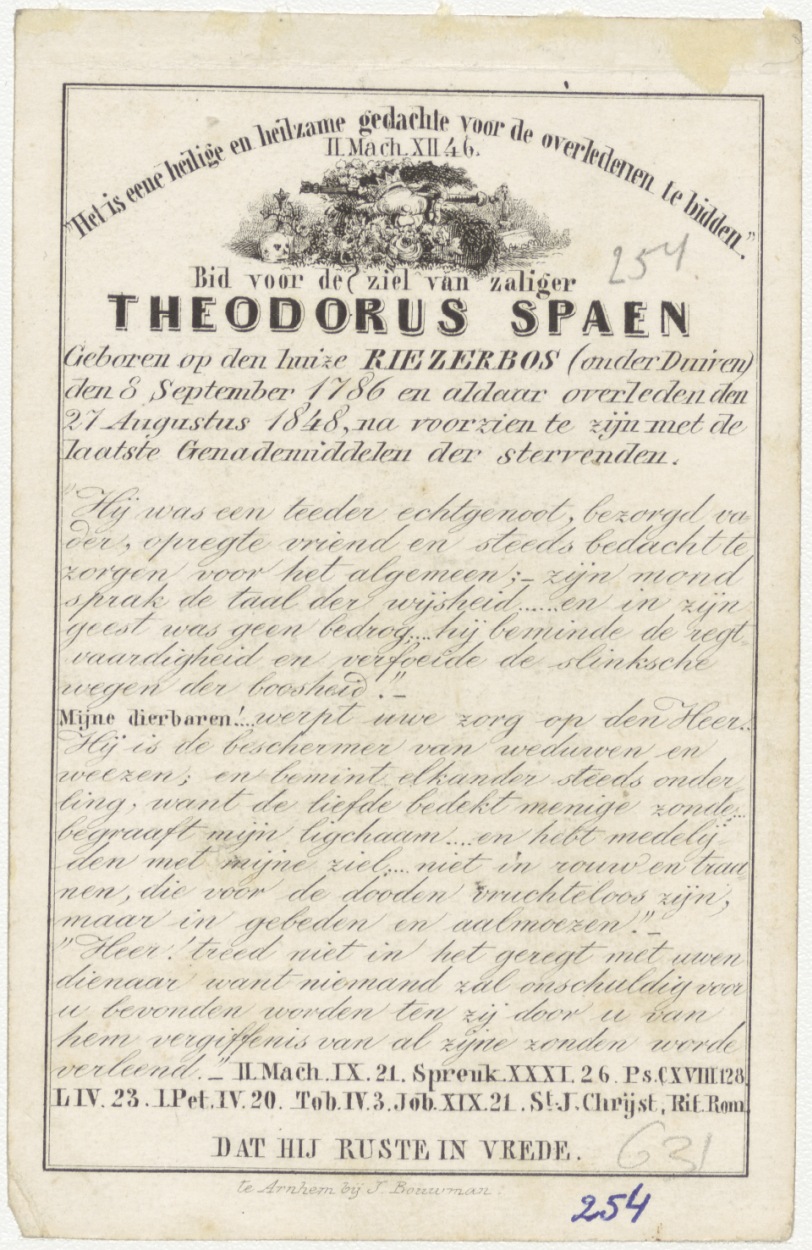 "Het is eene heilige en heilzame gedachte voor de overledenen te bidden."
II.Mach.XII 46.
254.
Bid voor de ziel van zaliger
THEODORUS SPAEN
Geboren op den huize RIEZERBOS (onder Duiven)
den 8 September 1786 en aldaar overleden den
27 Augustus 1848, na voorzien te zijn met de
laatste Genademiddelen der stervenden.
"Hij was een teeder echtgenoot, bezorgd va-
der, opregte vriend en steeds bedacht te
zorgen voor het algemeen;_ zijn mond
sprak de taal der wijsheid......en in zijn
geest was geen bedrog;...hij beminde de regt-
vaardigheid en verfoeide de slinksche
wegen der boosheid."_
Mijne dierbaren!...werpt uwe zorg op den Heer..
Hij is de beschermer van weduwen en
weezen; en bemint elkander steeds onder
ling, want de liefde bedekt menige zonde...
begraaft mijn ligchaam....en hebt medelij-
den met mijne ziel;... niet in rouw en traa
nen, die voor de dooden vruchteloos zijn,
maar in gebeden en aalmoezen."_
"Heer! treed niet in het geregt met uwen
dienaar want niemand zal onschuldig voor
u bevonden worden ten zij door u van
hem vergiffenis van al zijne zonden worde
verleend._" II.Mach.IX.21. Spreuk.XXXI.26. Ps.CXVIII 128.
LIV.23.I.Pet.IV.20. Tob.IV.3.Job.XIX.21. St.J.Chrijst, Rit.Rom.
DAT HIJ RUSTE IN VREDE.
631
te Arnhem bij J. Bouwman.
254